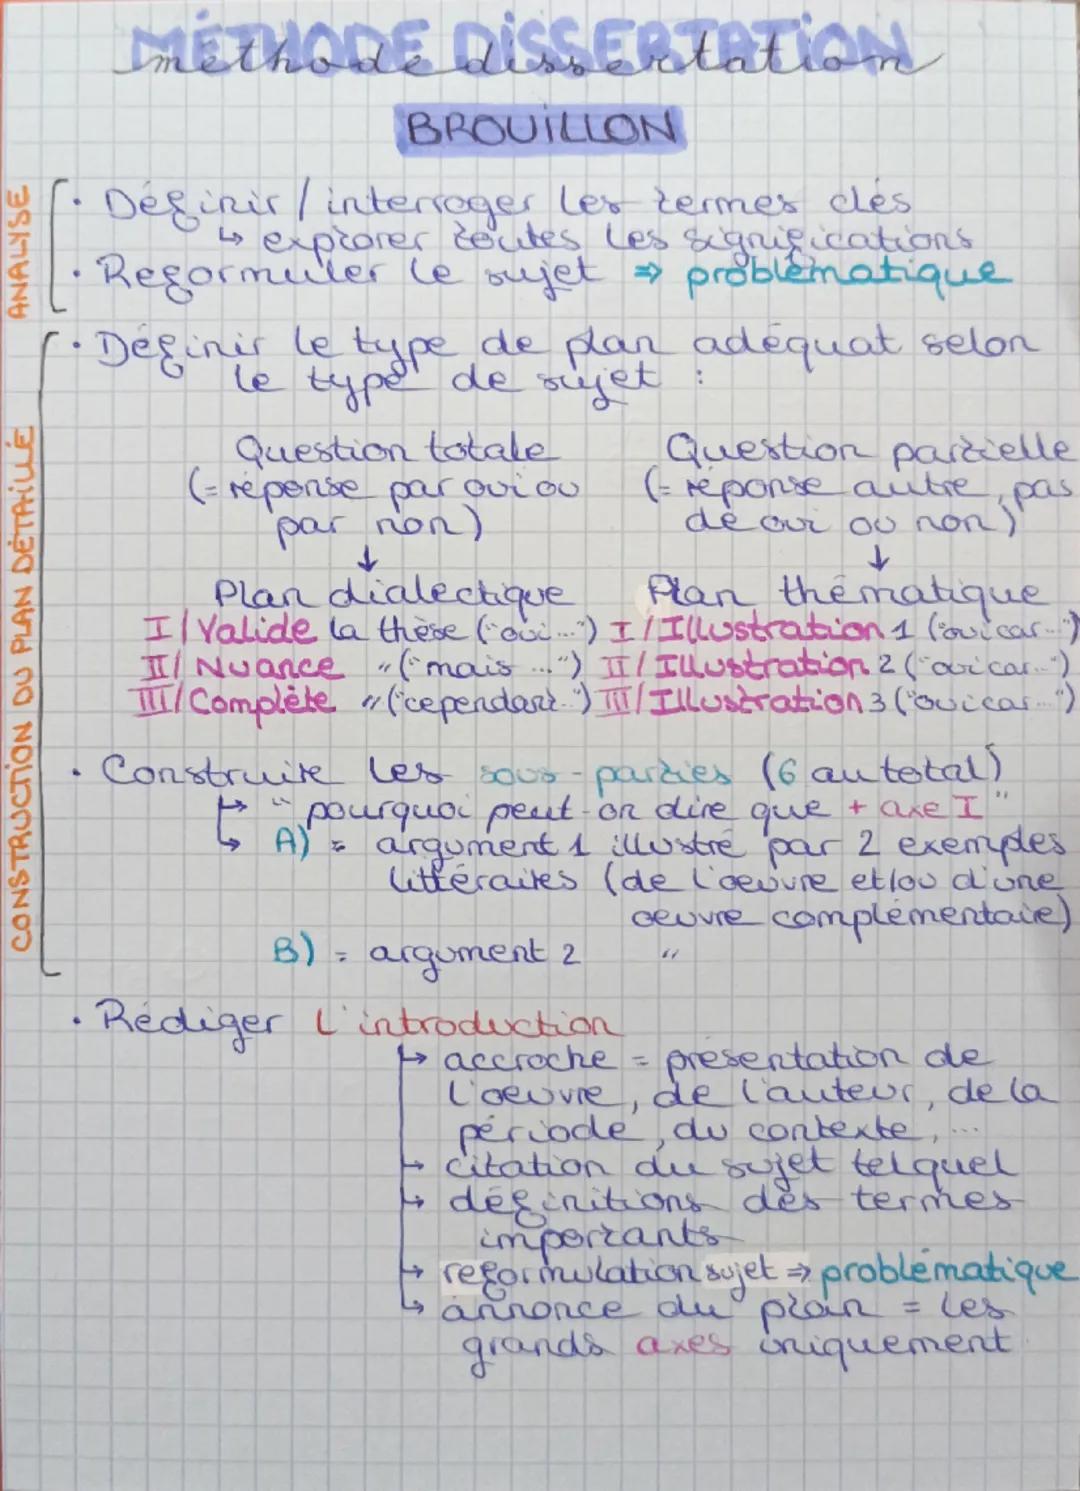 MÉTHODE DISSERTATION
méthode dissertation
BROUILLON
ANALYSE
· Définir / interroger les termes clés
↳ explorer toutes les significations
· Reformuler le sujet ⇒ problématique
CONSTRUCTION DU PLAN DÉTAILLÉ
· Définir le type de plan adéquat selon
le type de sujet :
Question totale
(= réponse par oui ou
par non)
↓
Plan dialectique
I/ Valide la thèse ("oui...")
II/ Nuance " ("mais ...")
III/ Complète " ("cependant...")
Question partielle
(= réponse autre, pas
de oui ou non)
↓
Plan thématique
I/ Illustration 1 ("oui car...")
II/ Illustration 2 ("oui car...")
III/ Illustration 3 ("oui car...")
· Construire les sous-parties (6 au total)
↳ "pourquoi peut-on dire que + axe I"
↳ A) = argument 1 illustré par 2 exemples
littéraires (de l'oeuvre et/ou d'une
oeuvre complémentaire)
B) = argument 2 "
· Rédiger l'introduction
↳ accroche = présentation de
l'oeuvre, de l'auteur, de la
période, du contexte, ...
↳ citation du sujet tel quel
↳ définitions des termes
importants
↳ reformulation sujet ⇒ problématique
↳ annonce du plan = les
grands axes uniquement